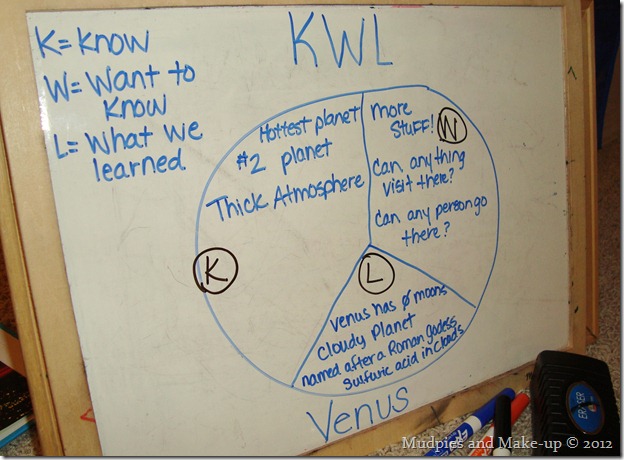 KWL
K= Know
W= Want to
Know
L= What we
learned
Hottest planet
#2 planet
Thick Atmosphere
K
more
Stuff!
W
Can anything
visit there?
Can any person go
there?
L
Venus has Ø moons
Cloudy Planet
named after a Roman godess
Sulfuric acid in clouds
Venus
ERASER
Mudpies and Make-up © 2012